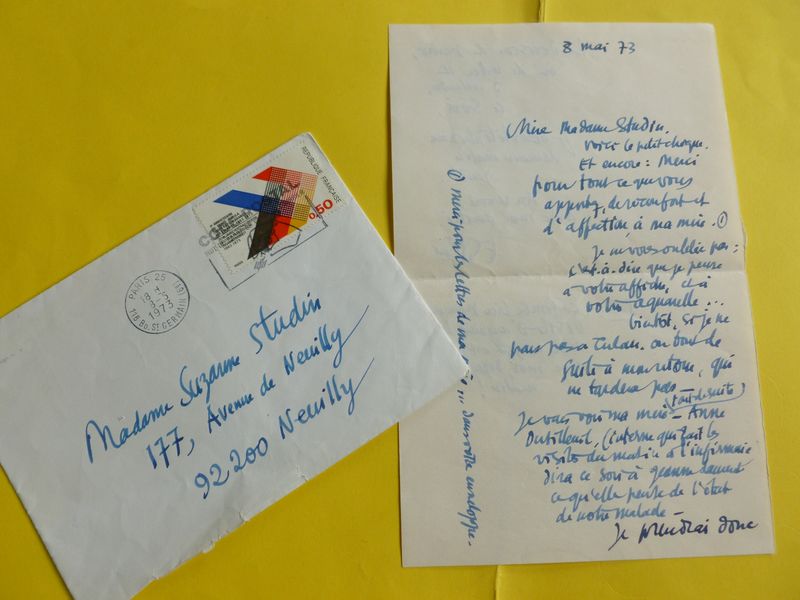 REPUBLIQUE FRANÇAISE
0,50
CODE POSTAL
PARIS 25
18 H
8-5
1973
118 BD. ST. GERMAIN (6E)
Madame Suzanne Studin
177, Avenue de Neuilly
92200 Neuilly
8 mai 73
Chère Madame Studin.
voici le petit chèque.
Et encore : Merci
pour tout ce que vous
apportez, de réconfort et
d'affection, à ma mère. ①
Je ne vous oublie pas :
c'est-à-dire que je pense
à votre affiche, et à
votre aquarelle...
bientôt, si je ne
pars pas à Tulau. ou tout de
suite à mon retour, qui
ne tardera pas —
(tout de suite)
Je vais voir ma mère — Anne
Dutilleul, (interne qui fait les
visites du matin à l'infirmerie
dira ce soir à Jeanne
ce qu'elle pense de l'état
de notre malade —
Je prendrai donc
① merci pour les lettres de ma dans votre enveloppe.